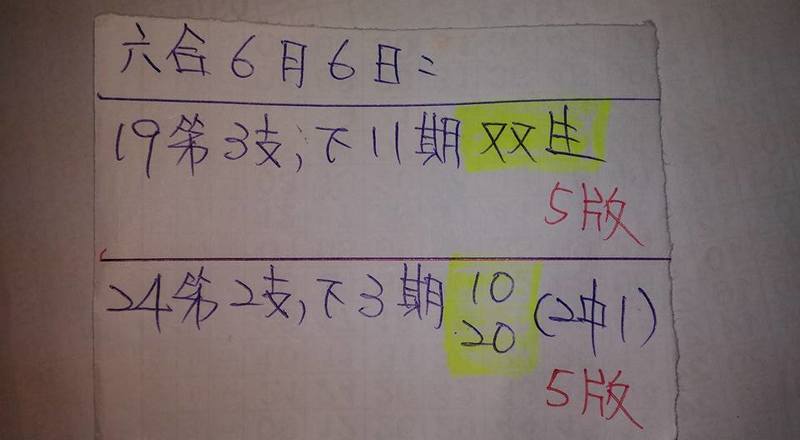 六合6月6日:
19第3支,下11期 双生
5版
24第2支,下3期 10 20 (2中1)
5版